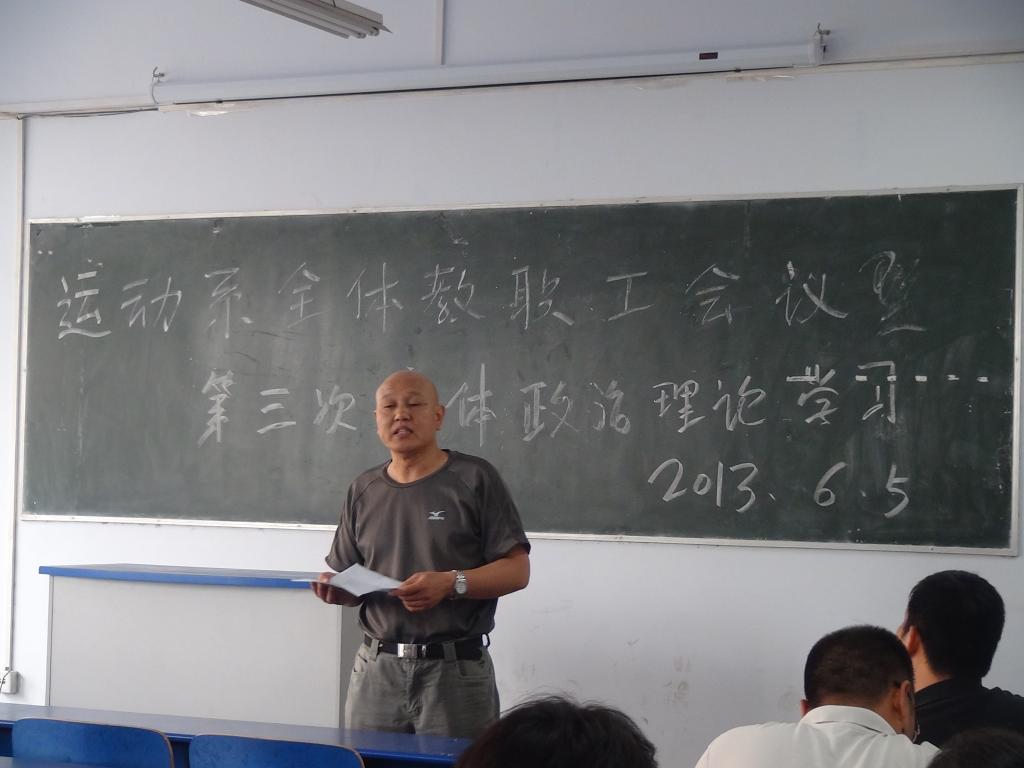 运动系全体教职工会议暨
第三次 体政治理论学习
2013.6.5